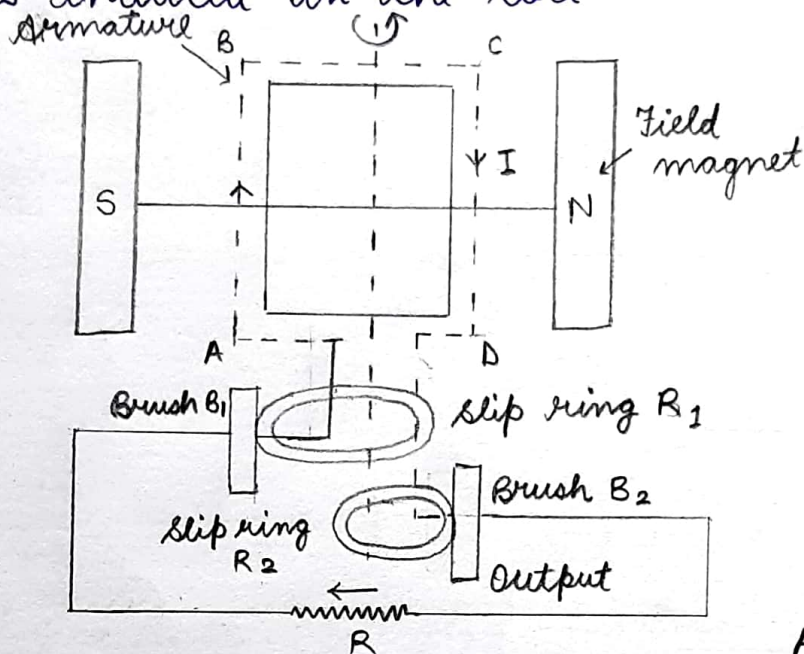 Armature
B
C
I
Field
magnet
S
N
A
D
Brush B1
Slip ring R1
Brush B2
Slip ring
R2
Output
R